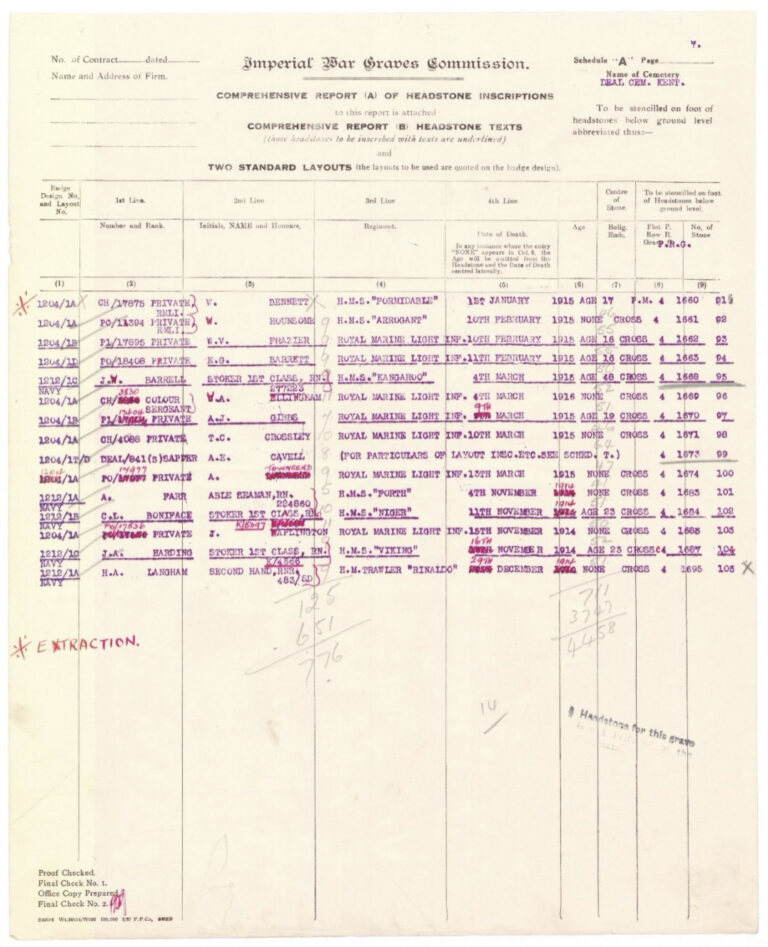 7.
No. of Contract dated
Imperial War Graves Commission.
Schedule "A" Page
Name and Address of Firm.
Name of Cemetery
DEAL CEM. KENT.
COMPREHENSIVE REPORT (A) OF HEADSTONE INSCRIPTIONS
to this report is attached
COMPREHENSIVE REPORT (B) HEADSTONE TEXTS
(those headstones to be inscribed with texts are underlined)
and
TWO STANDARD LAYOUTS (the layouts to be used are quoted on the badge design).
To be stencilled on foot of
headstones below ground level
abbreviated thus:—
Badge Design No. and Layout No. 1st Line. 2nd Line 3rd Line 4th Line Centre of Stone. To be stencilled on foot of Headstones below ground level.
Number and Rank. Initials, NAME and Honours. Regiment. Date of Death. Age Relig. Emb. Plot P. Row R. Grave P.R.G. No. of Stone
In any instance where the entry "NONE" appears in Col. 6, the Age will be omitted from the Headstone and the Date of Death centred laterally.
(1) (2) (3) (4) (5) (6) (7) (8) (9)
1204/1A CH/17875 PRIVATE RMLI. BENNETT H.M.S."FORMIDABLE" 1ST JANUARY 1915 AGE 17 F.M. 4 1660 91
1204/1A PO/11394 PRIVATE RMLI. W. HOUNSOME H.M.S."ARROGANT" 10TH FEBRUARY 1915 NONE CROSS 4 1661 92
1204/1B PL/17895 PRIVATE W.V. FRAZIER ROYAL MARINE LIGHT INF. 10TH FEBRUARY 1915 AGE 16 CROSS 4 1662 93
1204/1D PO/18408 PRIVATE E.G. BARRETT ROYAL MARINE LIGHT INF. 11TH FEBRUARY 1915 AGE 16 CROSS 4 1663 94
1212/1C NAVY J.W. BARRELL STOKER 1ST CLASS, RN. H.M.S."KANGAROO" 4TH MARCH 1915 AGE 48 CROSS 4 1668 95
1204/1A CH/3830 COLOUR SERGEANT W.A. ELLINGHAM ROYAL MARINE LIGHT INF. 4TH MARCH 1915 NONE CROSS 4 1669 96
1204/1B PRIVATE A.J. GIBBS ROYAL MARINE LIGHT INF. 9TH MARCH 1915 AGE 19 CROSS 4 1670 97
1204/1A CH/4088 PRIVATE T.C. CROSSLEY ROYAL MARINE LIGHT INF. 10TH MARCH 1915 NONE CROSS 4 1671 98
1204/1T/D DEAL/841(S) SAPPER A.E. CAVELL (FOR PARTICULARS OF LAYOUT INSC.ETC.SEE SCHED. T.) 4 1673 99
1204/1A PO/14977 PRIVATE A. TOWNSEND ROYAL MARINE LIGHT INF. 13TH MARCH 1915 NONE CROSS 4 1674 100
1212/1A NAVY A. FARR ABLE SEAMAN, RN. 224860 H.M.S."FORTH" 4TH NOVEMBER 1914 NONE CROSS 4 1683 101
1212/1B NAVY C.L. BONIFACE STOKER 1ST CLASS, RN. K/5247 H.M.S."NIGER" 11TH NOVEMBER 1914 AGE 23 CROSS 4 1684 102
1204/1A PO/17836 PRIVATE J. WAPLINGTON ROYAL MARINE LIGHT INF. 15TH NOVEMBER 1914 NONE CROSS 4 1685 103
1212/1C NAVY J.A. HARDING STOKER 1ST CLASS, RN. K/4566 H.M.S."VIKING" 16TH NOVEMBER 1914 AGE 23 CROSS 4 1687 104
1212/1A NAVY H.A. LANGHAM SECOND HAND, RNR. 483/SD H.M.TRAWLER "RINALDO" 29TH DECEMBER 1914 NONE CROSS 4 1695 105 X
125
651
776
711
3747
4458
EXTRACTION.
14
Headstone for this grave
Proof Checked.
Final Check No. 1.
Office Copy Prepared.
Final Check No. 2.